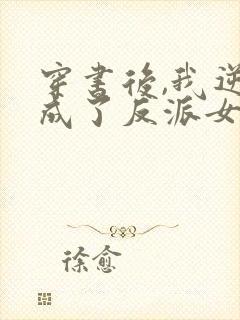 穿书后,我逆
成了反派女
徐愈